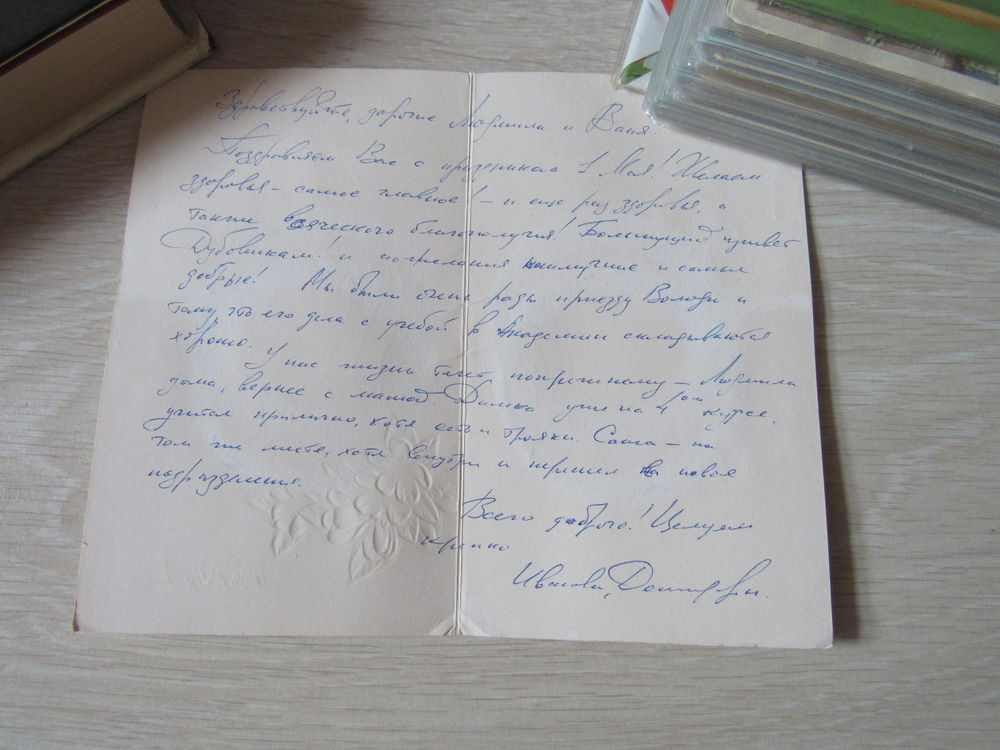 Здравствуйте, дорогие Людмила и Ваня
Поздравляем Вас с праздником 1 Мая! Желаем
здоровья - самое главное! - и еще раз здоровья, а
также всяческого благополучия! Большущий привет
Дубовикам! и пожелания наилучшие и самые
добрые! Мы были очень рады приезду Володи и
тому, что его дела с учебой в Академии складываются
хорошо. У нас жизнь течет попрежнему - Людмила
дома, вернее с мамой Димка уже на 4ом курсе.
учится прилично, хотя есть и трояки. Саша - на
том же месте, хотя внутри и перешел в новое
подразделения.
Всего доброго! Целуем
крепко
Ивановы,